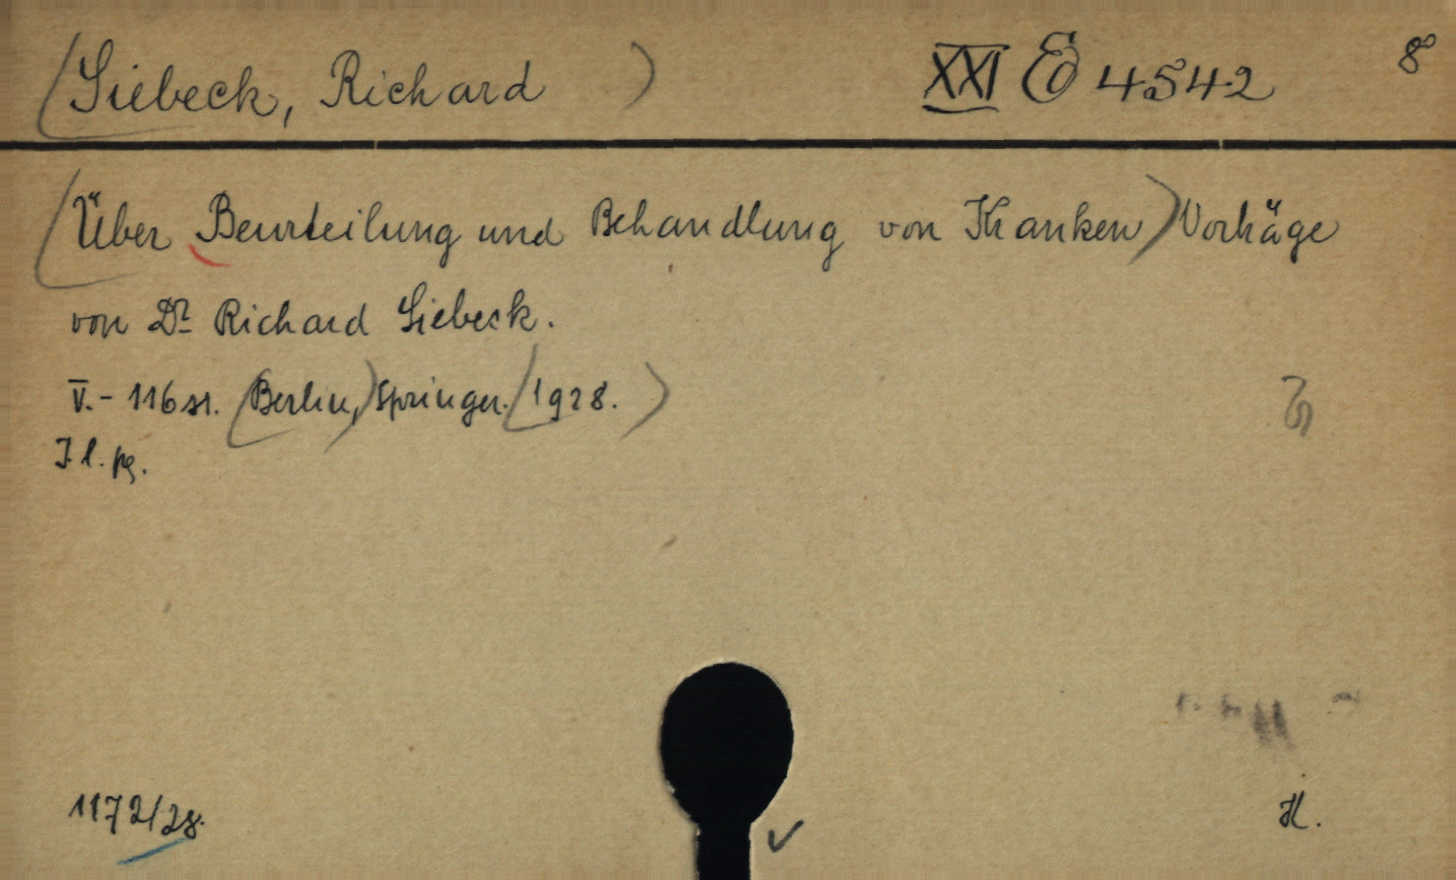 (Siebeck, Richard) XXI E 4542 8°
(Über Beurteilung und Behandlung von Kranken) Vorträge
von Dr Richard Siebeck.
V.- 116 s1. (Berlin,) Springer. (1928.)
J. l. pg.
1172/28.
H.